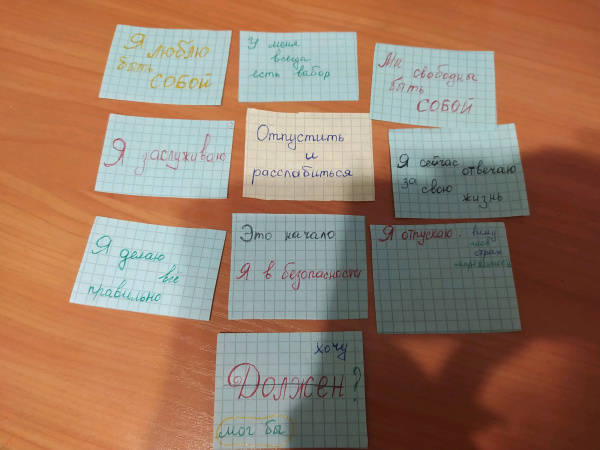 Я люблю
быть
СОБОЙ
У меня
всегда
есть выбор
Мы
свободны
быть
СОБОЙ
Я заслуживаю
Отпустить
и
расслабиться
Я сейчас
отвечаю
за свою
жизнь
Я делаю
все
правильно
Это начало
Я в безопасности
Я отпускаю
вину
гнев
страх
хочу
Должен?
мог бы